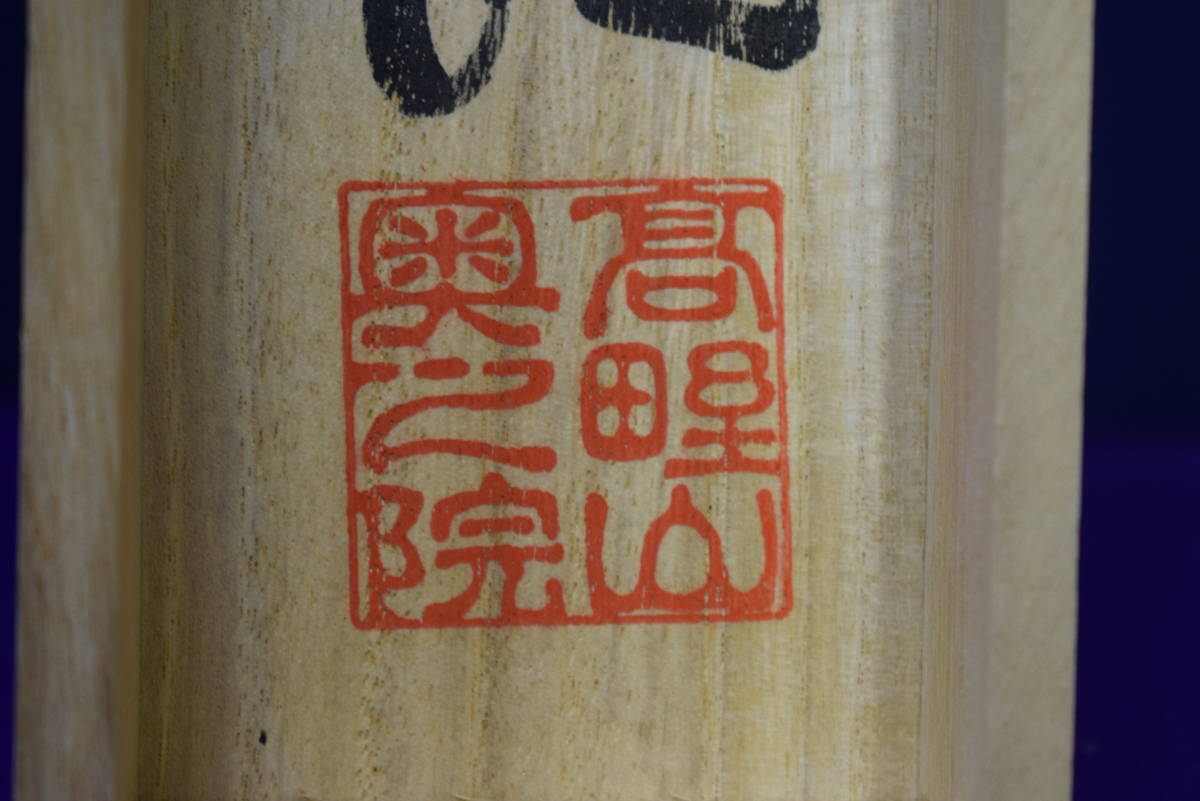 髙野山
奥之院